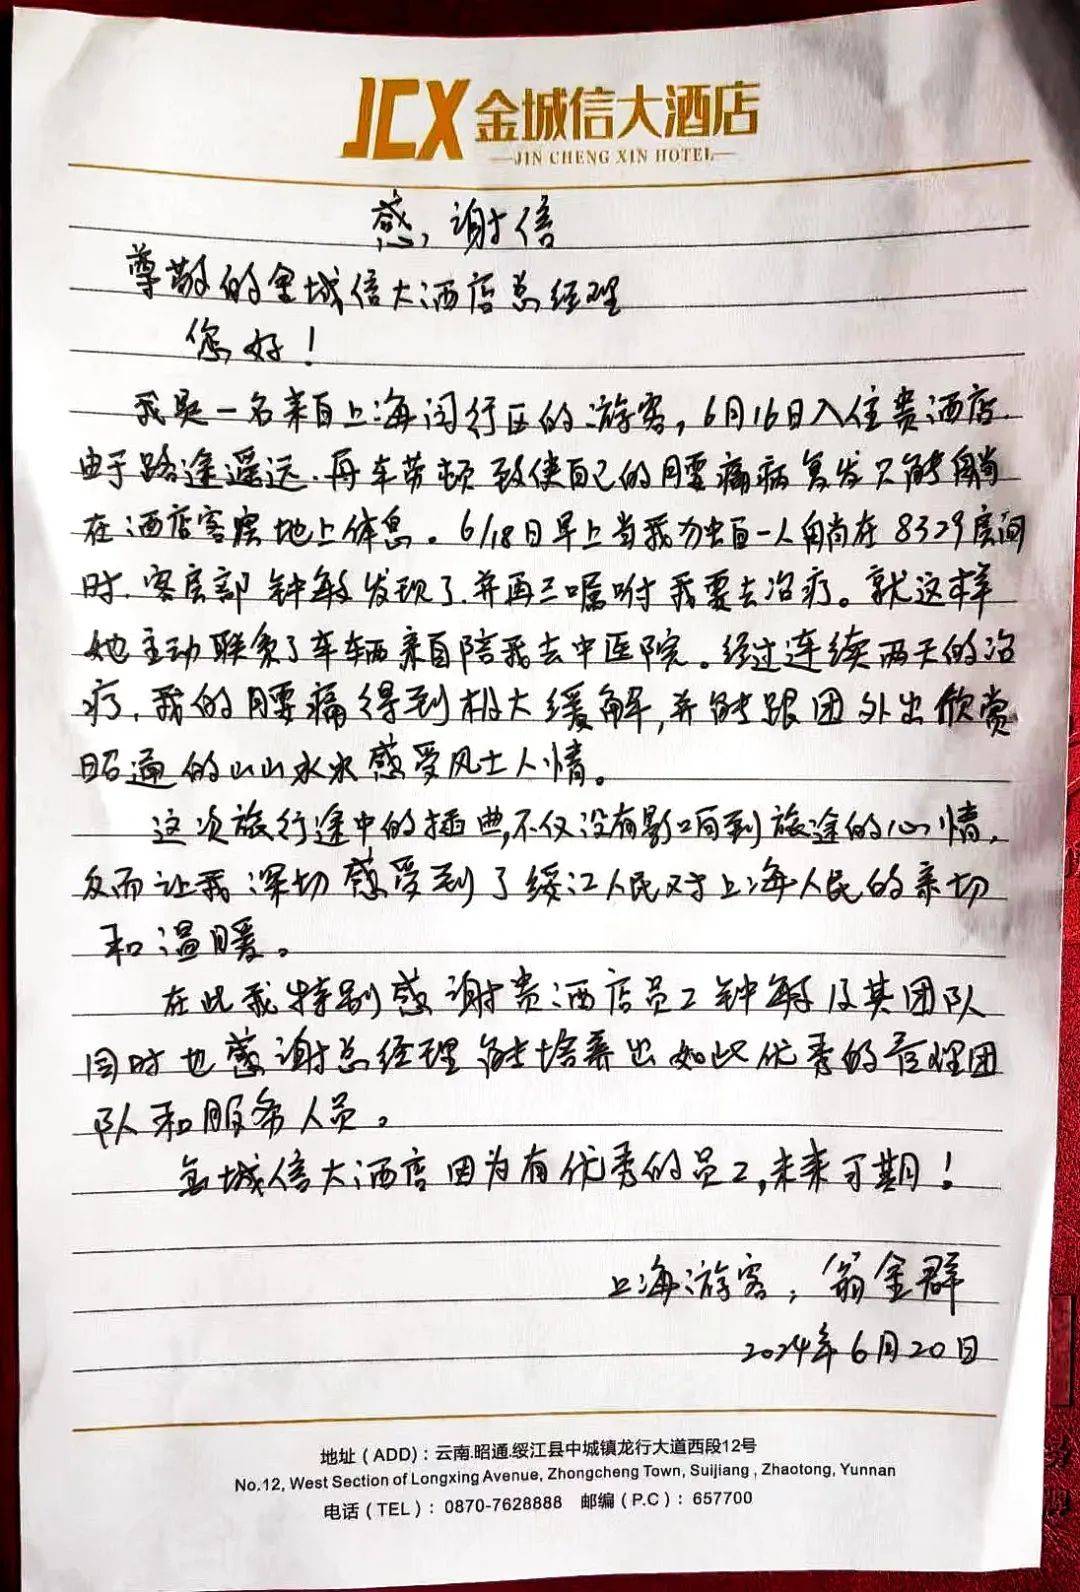 JCX 金城信大酒店
JIN CHENG XIN HOTEL
感谢信
尊敬的金城信大酒店总经理
您好！
我是一名来自上海闵行区的游客，6月16日入住贵酒店.
由于路途遥远.再车劳顿致使自己的腰痛病复发只能躺
在酒店客房地上休息。6/18日早上当我独自一人躺在8329房间
时.客房部钟敏发现了.并再三嘱咐我要去治疗。就这样
她主动联系了车辆亲自陪我去中医院。经过连续两天的治
疗.我的腰痛得到极大缓解,并能跟团外出欣赏
昭通的山山水水感受风土人情。
这次旅行途中的插曲,不仅没有影响到旅途的心情,
反而让我深切感受到了绥江人民对上海人民的亲切
和温暖。
在此我特别感谢贵酒店员工钟敏及其团队
同时也感谢总经理能培养出如此优秀的管理团
队和服务人员。
金城信大酒店因为有优秀的员工,未来可期！
上海游客：翁金群
2024年6月20日
地址（ADD）: 云南.昭通.绥江县中城镇龙行大道西段12号
No.12, West Section of Longxing Avenue, Zhongcheng Town, Suijiang , Zhaotong, Yunnan
电话（TEL）: 0870-7628888 邮编（P.C）: 657700